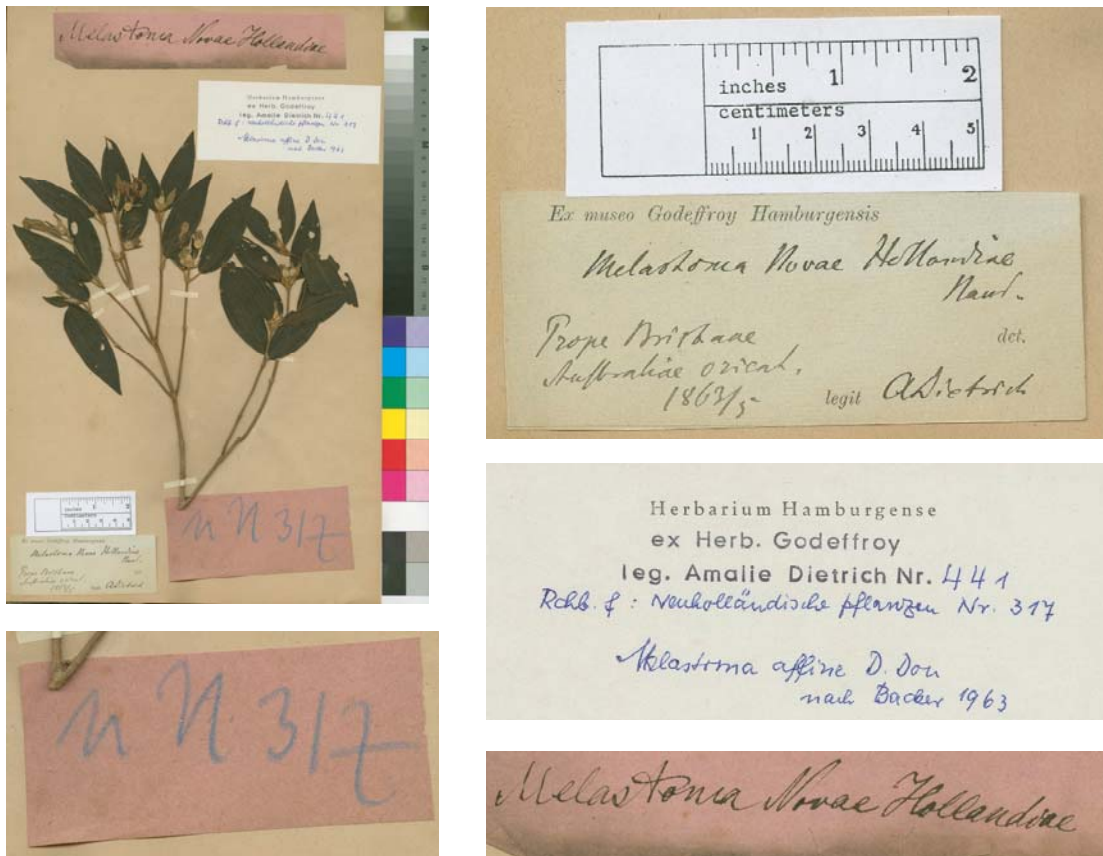 Melastoma Novae Hollandiae
Herbarium Hamburgense
ex Herb. Godeffroy
leg. Amalie Dietrich Nr. 441
Rchb. f: Neuholländische pflanzen Nr. 317
Melastoma affine D. Don
nach Backer 1963
n N 317
inches 1 2
centimeters
1 2 3 4 5
Ex museo Godeffroy Hamburgensis
Melastoma Novae Hollandiae
Naud.
Prope Brisbane
det.
Australiae orient.
1863/5 legit ADietrich
n N 317
inches 1 2
centimeters
1 2 3 4 5
Ex museo Godeffroy Hamburgensis
Melastoma Novae Hollandiae
Naud.
Prope Brisbane
det.
Australiae orient.
1863/5 legit ADietrich
Herbarium Hamburgense
ex Herb. Godeffroy
leg. Amalie Dietrich Nr. 441
Rchb. f : Neuholländische pflanzen Nr. 317
Melastoma affine D. Don
nach Backer 1963
Melastoma Novae Hollandiae